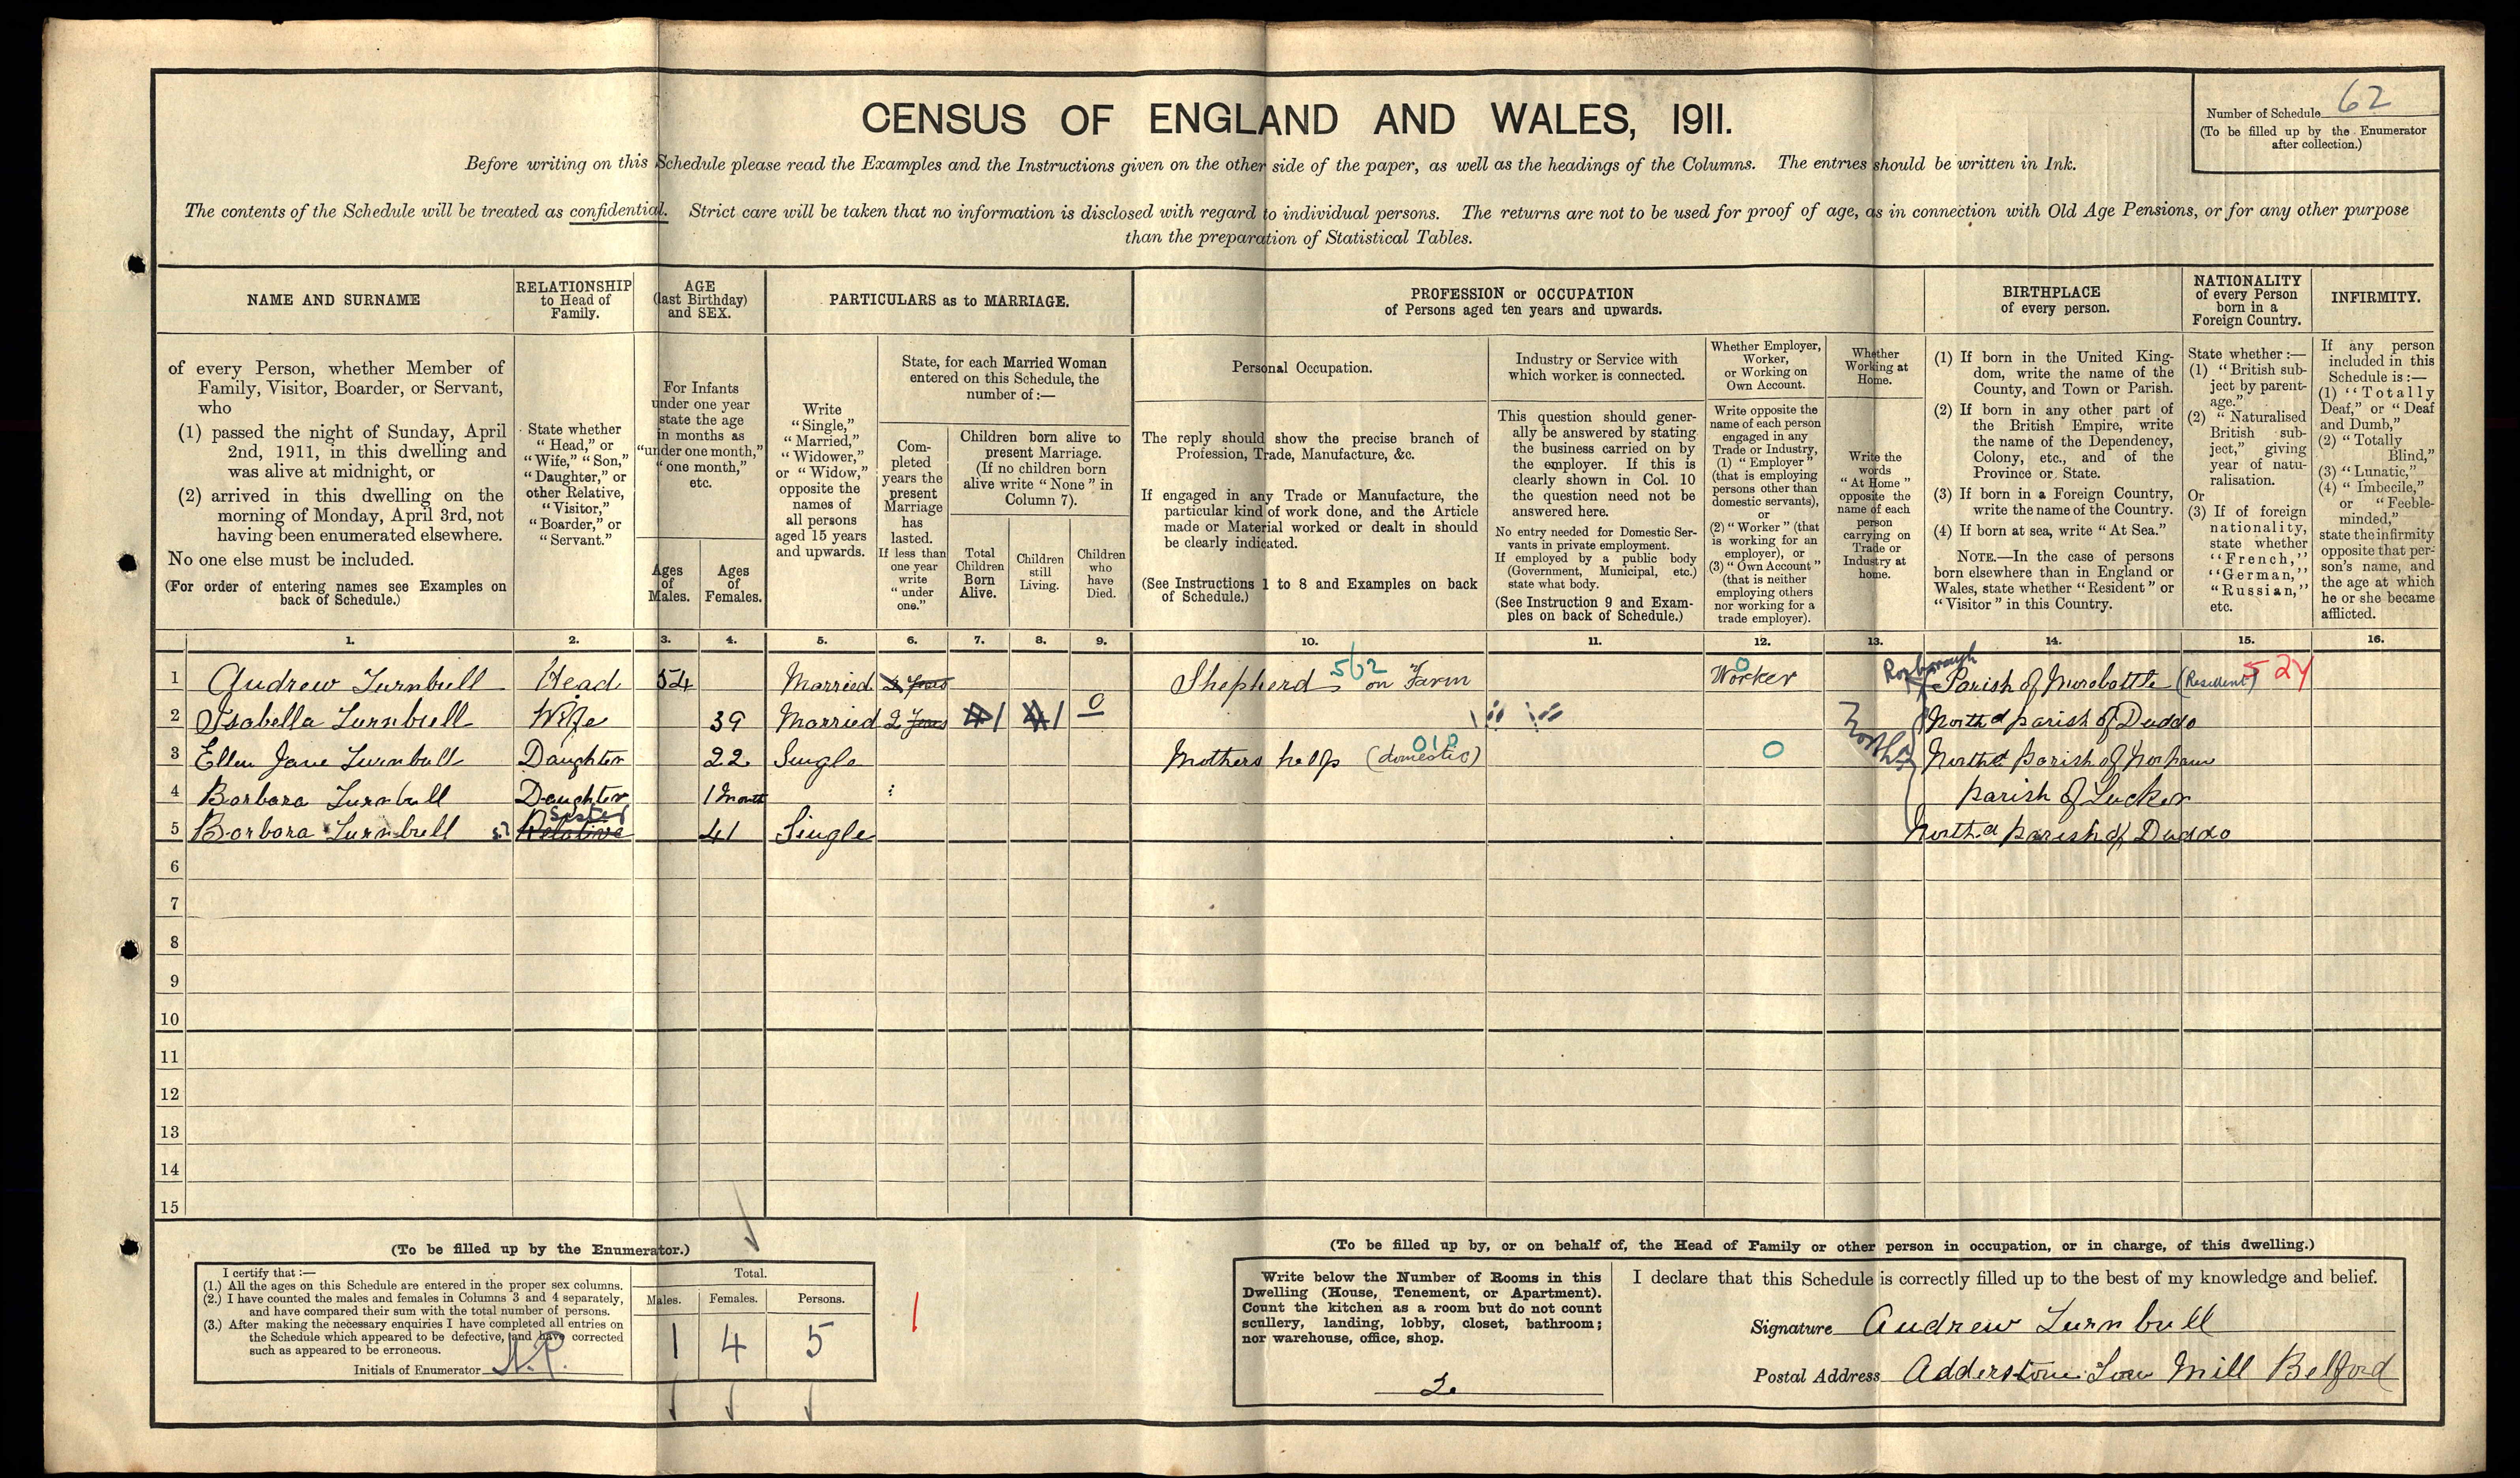 CENSUS OF ENGLAND AND WALES, 1911.
Number of Schedule 62
(To be filled up by the Enumerator after collection.)
Before writing on this Schedule please read the Examples and the Instructions given on the other side of the paper, as well as the headings of the Columns. The entries should be written in Ink.
The contents of the Schedule will be treated as confidential. Strict care will be taken that no information is disclosed with regard to individual persons. The returns are not to be used for proof of age, as in connection with Old Age Pensions, or for any other purpose
than the preparation of Statistical Tables.
NAME AND SURNAME
of every Person, whether Member of
Family, Visitor, Boarder, or Servant,
who
(1) passed the night of Sunday, April
2nd, 1911, in this dwelling and
was alive at midnight, or
(2) arrived in this dwelling on the
morning of Monday, April 3rd, not
having been enumerated elsewhere.
No one else must be included.
(For order of entering names see Examples on
back of Schedule.)
RELATIONSHIP
to Head of
Family.
State whether
"Head," or
"Wife," "Son,"
"Daughter," or
other Relative,
"Visitor,"
"Boarder," or
"Servant."
AGE
(last Birthday)
and SEX.
For Infants
under one year
state the age
in months as
"under one month,"
"one month,"
etc.
Ages
of
Males.
Ages
of
Females.
PARTICULARS as to MARRIAGE.
Write
"Single,"
"Married,"
"Widower,"
or "Widow,"
opposite the
names of
all persons
aged 15 years
and upwards.
State, for each Married Woman
entered on this Schedule, the
number of:—
Com-
pleted
years the
present
Marriage
has
lasted.
If less than
one year
write
"under
one."
Children born alive to
present Marriage.
(If no children born
alive write "None" in
Column 7).
Total
Children
Born
Alive.
Children
still
Living.
Children
who
have
Died.
PROFESSION or OCCUPATION
of Persons aged ten years and upwards.
Personal Occupation.
The reply should show the precise branch of
Profession, Trade, Manufacture, &c.
If engaged in any Trade or Manufacture, the
particular kind of work done, and the Article
made or Material worked or dealt in should
be clearly indicated.
(See Instructions 1 to 8 and Examples on back
of Schedule.)
Industry or Service with
which worker is connected.
This question should gener-
ally be answered by stating
the business carried on by
the employer. If this is
clearly shown in Col. 10
the question need not be
answered here.
No entry needed for Domestic Ser-
vants in private employment.
If employed by a public body
(Government, Municipal, etc.)
state what body.
(See Instruction 9 and Exam-
ples on back of Schedule.)
Whether Employer,
Worker,
or Working on
Own Account.
Write opposite the
name of each person
engaged in any
Trade or Industry,
(1) "Employer"
(that is employing
persons other than
domestic servants),
or
(2) "Worker" (that
is working for an
employer), or
(3) "Own Account"
(that is neither
employing others
nor working for a
trade employer).
Whether
Working at
Home.
Write the
words
"At Home"
opposite the
name of each
person
carrying on
Trade or
Industry at
home.
BIRTHPLACE
of every person.
(1) If born in the United King-
dom, write the name of the
County, and Town or Parish.
(2) If born in any other part of
the British Empire, write
the name of the Dependency,
Colony, etc., and of the
Province or State.
(3) If born in a Foreign Country,
write the name of the Country.
(4) If born at sea, write "At Sea."
NOTE.—In the case of persons
born elsewhere than in England or
Wales, state whether "Resident" or
"Visitor" in this Country.
NATIONALITY
of every Person
born in a
Foreign Country.
State whether:—
(1) "British sub-
ject by parent-
age."
(2) "Naturalised
British sub-
ject," giving
year of natu-
ralisation.
Or
(3) If of foreign
nationality,
state whether
"French,"
"German,"
"Russian,"
etc.
INFIRMITY.
If any person
included in this
Schedule is:—
(1) "Totally
Deaf," or "Deaf
and Dumb,"
(2) "Totally
Blind,"
(3) "Lunatic,"
(4) "Imbecile,"
or "Feeble-
minded,"
state the infirmity
opposite that per-
son's name, and
the age at which
he or she became
afflicted.
1. 2. 3. 4. 5. 6. 7. 8. 9. 10. 11. 12. 13. 14. 15. 16.
1 Andrew Turnbull Head 54 Married Years Shepherd 562 on Farm Worker 0 Roxborough Parish of Morebattle (Resident) 524
2 Isabella Turnbull Wife 39 Married 2 Years 1 1 0 North'd parish of Duddo
3 Ellen Jane Turnbull Daughter 22 Single Mothers help (domestic) 010 0 North'd Parish of Norham
4 Barbara Turnbull Daughter 1 Month parish of Lucker
5 Barbara Turnbull Relative Sister 41 Single North'd parish of Duddo
6
7
8
9
10
11
12
13
14
15
(To be filled up by the Enumerator.)
I certify that:—
(1.) All the ages on this Schedule are entered in the proper sex columns.
(2.) I have counted the males and females in Columns 3 and 4 separately,
and have compared their sum with the total number of persons.
(3.) After making the necessary enquiries I have completed all entries on
the Schedule which appeared to be defective, and have corrected
such as appeared to be erroneous.
Initials of Enumerator
Total.
Males. Females. Persons.
1 4 5
(To be filled up by, or on behalf of, the Head of Family or other person in occupation, or in charge, of this dwelling.)
Write below the Number of Rooms in this
Dwelling (House, Tenement, or Apartment).
Count the kitchen as a room but do not count
scullery, landing, lobby, closet, bathroom;
nor warehouse, office, shop.
2.
I declare that this Schedule is correctly filled up to the best of my knowledge and belief.
Signature Andrew Turnbull
Postal Address Adderstone Low Mill Belford